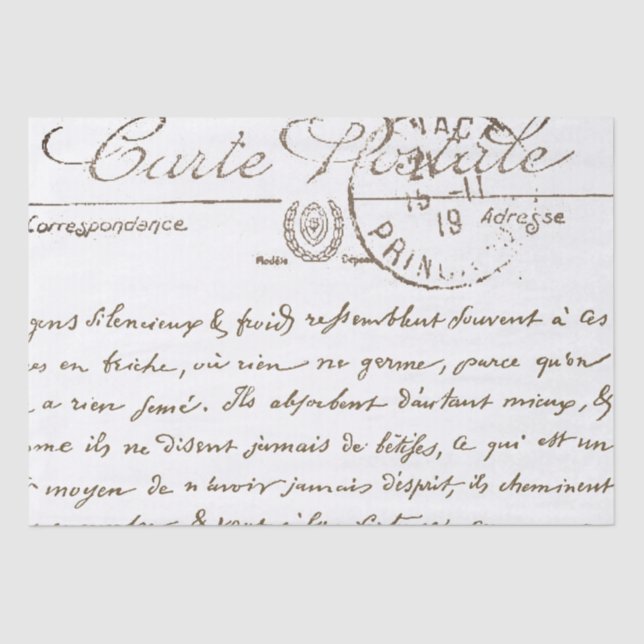 Carte Postale
15-11
19
PRIN
Correspondance
Adresse
Modèle Déposé
gens silencieux & froids ressemblent souvent à ces
en friche, où rien ne germe, parce qu'on
a rien semé. Ils absorbent d'autant mieux, &
me ils ne disent jamais de bêtises, ce qui est un
moyen de n'avoir jamais d'esprit, ils cheminent
& vous à la